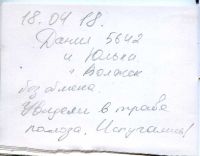 18.04.18.
Дания 5642
и Юлька
+ Волжек
без обмена.
Увидели в траве
полоза. Испугались!